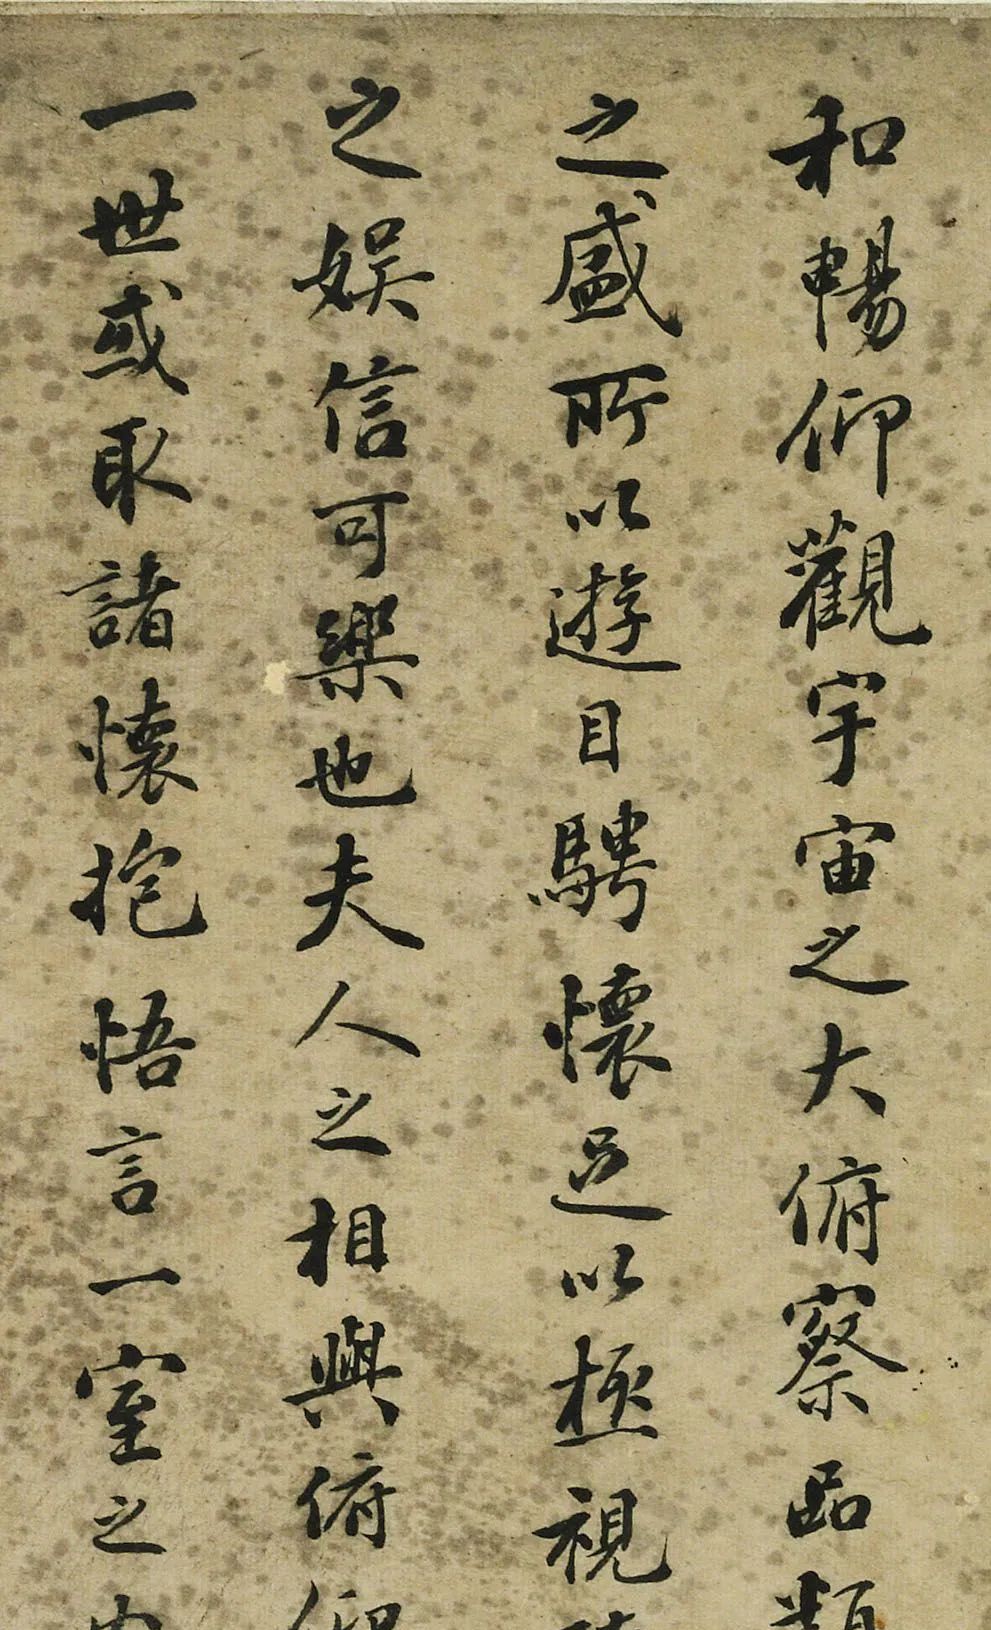 和暢仰觀宇宙之大俯察品類
之盛所以遊目騁懷足以極視
之娱信可樂也夫人之相與俯仰
一世或取諸懷抱悟言一室之内